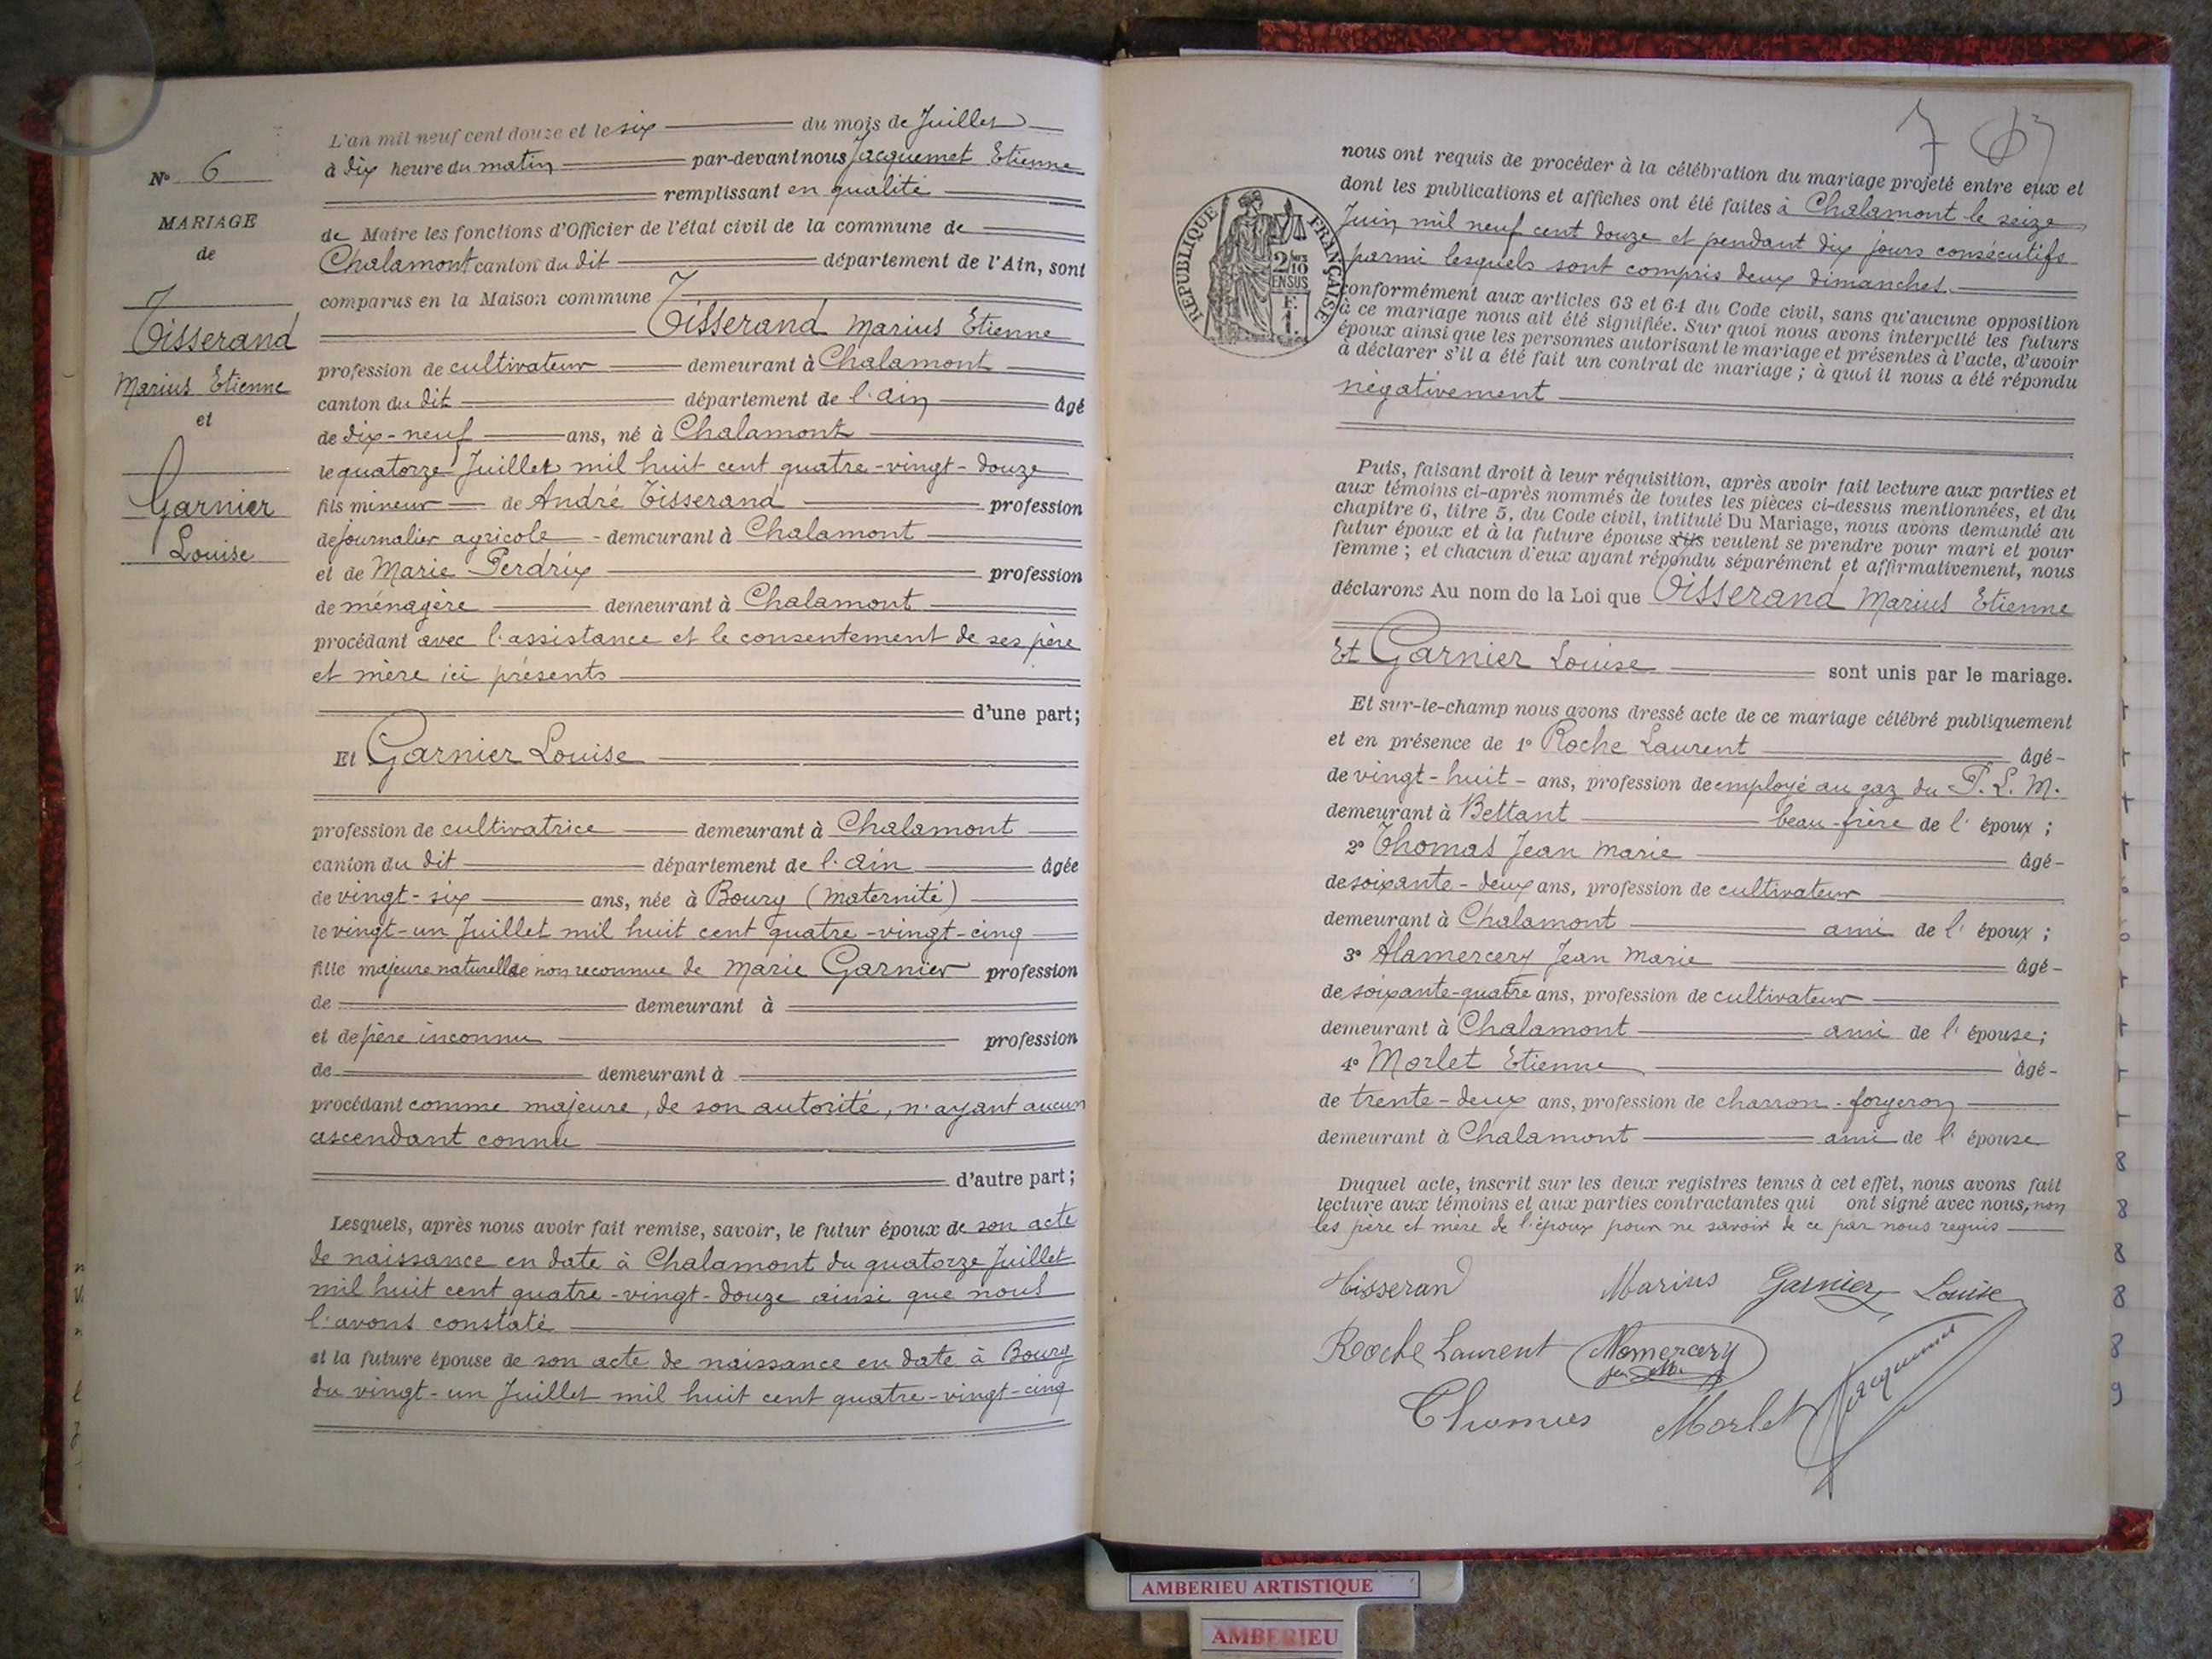 L'an mil neuf cent douze et le six du mois de Juillet
à dix heure du matin par-devant nous Jacquemet Etienne
remplissant en qualité
de Maire les fonctions d'Officier de l'état civil de la commune de
Chalamont canton du dit département de l'Ain, sont
comparus en la Maison commune
Tisserand Marius Etienne
profession de cultivateur demeurant à Chalamont
canton du dit département de l'ain âgé
de dix-neuf ans, né à Chalamont
le quatorze Juillet mil huit cent quatre-vingt-douze
fils mineur de André Tisserand profession
de journalier agricole demeurant à Chalamont
et de Marie Perdrix profession
de ménagère demeurant à Chalamont
procédant avec l'assistance et le consentement de ses père
et mère ici présents
d'une part;
Et Garnier Louise
profession de cultivatrice demeurant à Chalamont
canton du dit département de l'ain âgée
de vingt-six ans, née à Bourg (Maternité)
le vingt-un Juillet mil huit cent quatre-vingt-cinq
fille majeure naturelle de non reconnue de Marie Garnier profession
de demeurant à
et de père inconnu profession
de demeurant à
procédant comme majeure, de son autorité, n'ayant aucun
ascendant connu
d'autre part;
Lesquels, après nous avoir fait remise, savoir, le futur époux de son acte
de naissance en date à Chalamont du quatorze Juillet
mil huit cent quatre-vingt-douze ainsi que nous
l'avons constaté
et la future épouse de son acte de naissance en date à Bourg
du vingt-un Juillet mil huit cent quatre-vingt-cinq
N° 6
MARIAGE
de
Tisserand
Marius Etienne
et
Garnier
Louise
7
nous ont requis de procéder à la célébration du mariage projeté entre eux et
dont les publications et affiches ont été faites à Chalamont le seize
Juin mil neuf cent douze et pendant dix jours consécutifs
parmi lesquels sont compris deux dimanches.
conformément aux articles 63 et 64 du Code civil, sans qu'aucune opposition
à ce mariage nous ait été signifiée. Sur quoi nous avons interpellé les futurs
époux ainsi que les personnes autorisant le mariage et présentes à l'acte, d'avoir
à déclarer s'il a été fait un contrat de mariage; à quoi il nous a été répondu
négativement
Puis, faisant droit à leur réquisition, après avoir fait lecture aux parties et
aux témoins ci-après nommés de toutes les pièces ci-dessus mentionnées, et du
chapitre 6, titre 5, du Code civil, intitulé Du Mariage, nous avons demandé au
futur époux et à la future épouse s'ils veulent se prendre pour mari et pour
femme; et chacun d'eux ayant répondu séparément et affirmativement, nous
déclarons Au nom de la Loi que Tisserand Marius Etienne
Et Garnier Louise sont unis par le mariage.
Et sur-le-champ nous avons dressé acte de ce mariage célébré publiquement
et en présence de 1° Roche Laurent âgé
de vingt-huit ans, profession de employé au gaz du P.L.M.
demeurant à Bettant beau-frère de l'époux;
2° Thomas Jean Marie âgé
de soixante-deux ans, profession de cultivateur
demeurant à Chalamont ami de l'époux;
3° Alamercery Jean Marie âgé
de soixante-quatre ans, profession de cultivateur
demeurant à Chalamont ami de l'épouse;
4° Morlet Etienne âgé
de trente-deux ans, profession de charron-forgeron
demeurant à Chalamont ami de l'épouse
Duquel acte, inscrit sur les deux registres tenus à cet effet, nous avons fait
lecture aux témoins et aux parties contractantes qui ont signé avec nous, non
les père et mère de l'époux pour ne savoir de ce par nous requis
Tisserand Marius Garnier Louise
Roche Laurent Alamercery
Thomas Morlet Jacquemet
RÉPUBLIQUE FRANÇAISE
2/10
EN SUS
F.
1.
8
8
8
8
8
9
AMBERIEU ARTISTIQUE
AMBERIEU